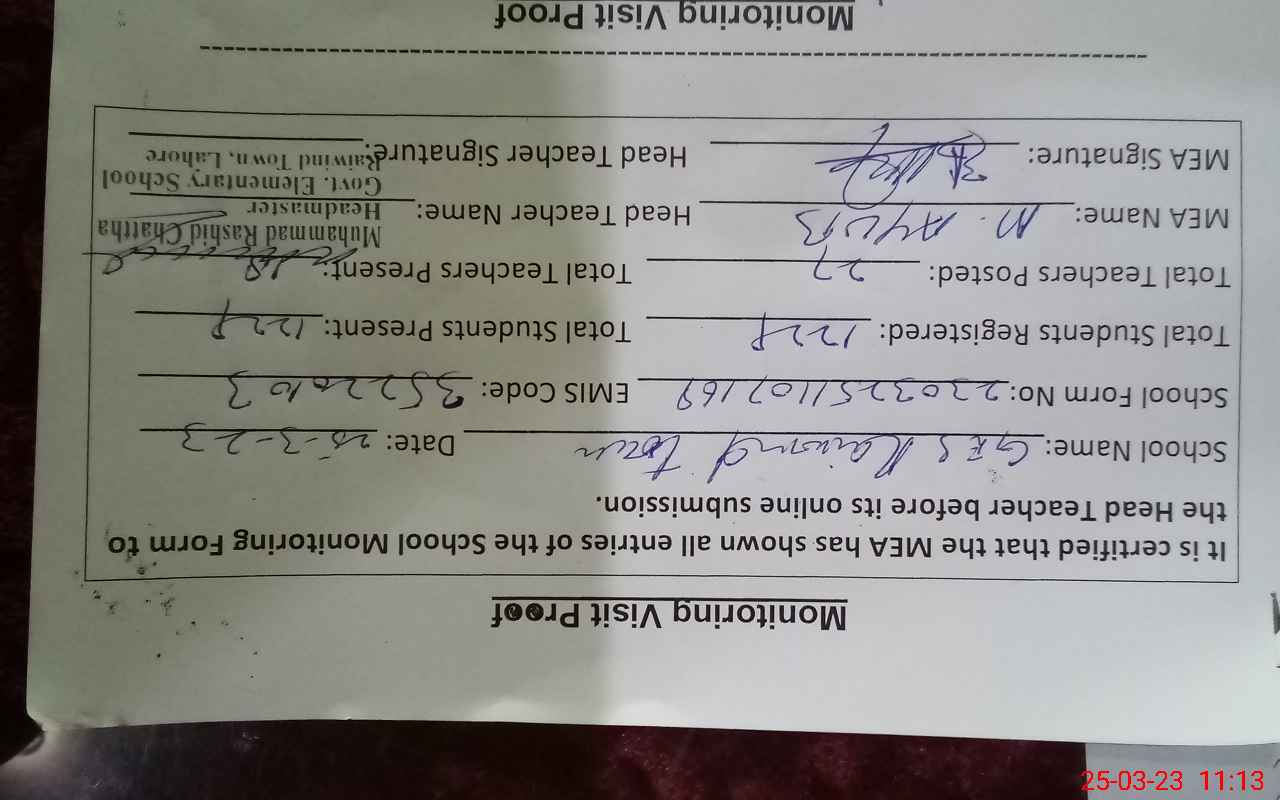 Monitoring Visit Proof
It is certified that the MEA has shown all entries of the School Monitoring Form to
the Head Teacher before its online submission.
School Name: GES Raiwind Town Date: 25-3-23
School Form No: EMIS Code: 35220103
Total Students Registered: Total Students Present:
Total Teachers Posted: 27 Total Teachers Present:
MEA Name: M. AYUB Head Teacher Name:
Muhammad Rashid Chattha
Headmaster
Govt. Elementary School
Raiwind Town, Lahore
MEA Signature: Head Teacher Signature:
Monitoring Visit Proof
25-03-23 11:13